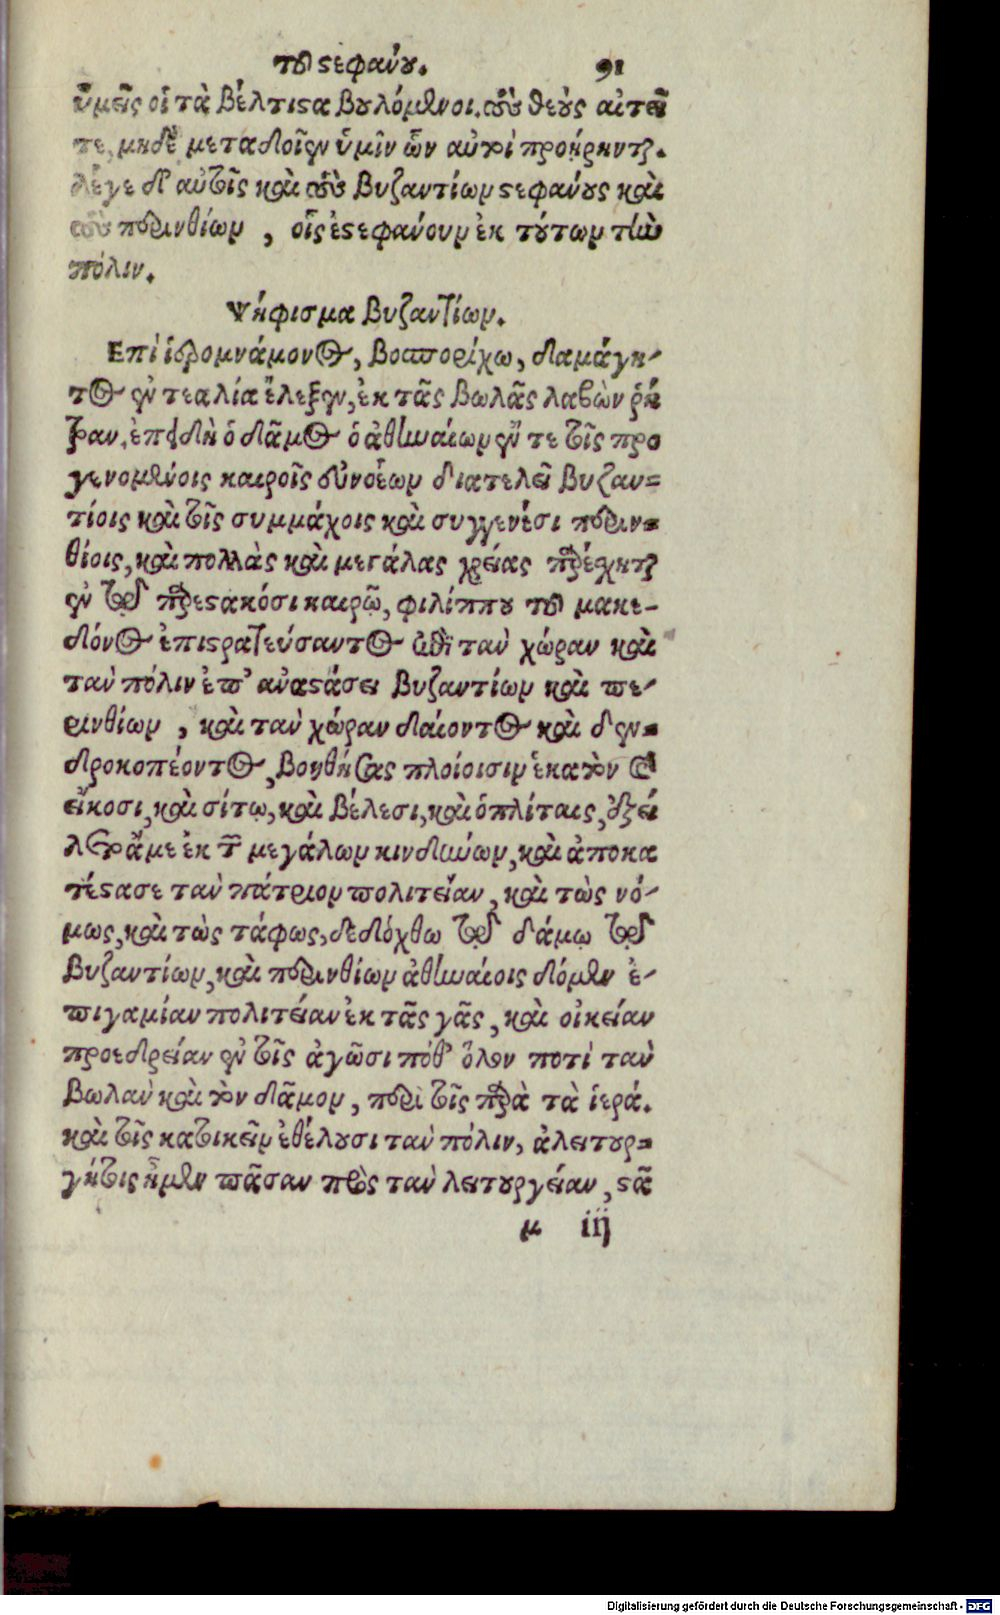 τοῦ στεφάνου. 91
ὑμεῖς οἱ τὰ βέλτιστα βουλόμενοι, τοὺς θεοὺς αἰτεῖ
τε, μηδὲ μεταδοῖεν ὑμῖν ὧν αὐτοὶ προῄρηνται.
λέγε δ' αὐτοῖς καὶ τοὺς βυζαντίων στεφάνους καὶ
τοὺς περινθίων, οἷς ἐστεφάνουν ἐκ τούτων τὴν
πόλιν.
Ψήφισμα βυζαντίων.
Επὶ ἱερομνάμονος, βοσπορίχω, δαμάγη-
τος ἐν τε ἁλία ἔλεξεν, ἐκ τᾶς βωλᾶς λαβὼν ῥή
τραν, ἐπειδὴ ὁ δᾶμος ὁ ἀθηναίων ἔν τε τοῖς προ
γενομένοις καιροῖς εὐνοέων διατελεῖ βυζαν=
τίοις καὶ τοῖς συμμάχοις καὶ συγγενέσι περιν=
θίοις, καὶ πολλὰς καὶ μεγάλας χρείας παρέσχηται
ἐν τῷ παρεστακόσι καιρῷ, φιλίππου τοῦ μακε-
δόνος ἐπιστρατεύσαντος ἐπὶ τὰν χώραν καὶ
τὰν πόλιν ἐπ' ἀναστάσει βυζαντίων καὶ πε-
ρινθίων, καὶ τὰν χώραν δαίοντος καὶ δεν=
δροκοπέοντος, βοηθήσας πλοίοισιν ἑκατὸν καὶ
εἴκοσι, καὶ σίτῳ, καὶ βέλεσι, καὶ ὁπλίταις, ἐξεί
λετο ἄμε ἐκ τῶν μεγάλων κινδύνων, καὶ ἀποκα
τέστασε τὰν πάτριον πολιτείαν, καὶ τὼς νό-
μως, καὶ τὼς τάφως, δεδόχθω τῷ δάμῳ τῷ
βυζαντίων, καὶ περινθίων ἀθηναίοις δόμεν ἐ-
πιγαμίαν πολιτείαν ἐκ τᾶς γᾶς, καὶ οἰκείαν
προεδρείαν ἐν τοῖς ἀγῶσι πόθ' ὅλον ποτὶ τὰν
βωλὰν καὶ τὸν δᾶμον, περὶ τοῖς παρὰ τὰ ἱερά.
καὶ τοῖς κατοικεῖν ἐθέλουσι τὰν πόλιν, ἀλειτουρ=
γήτοις ἦμεν πᾶσαν πρὸς τὰν λειτουργείαν, στᾶ
μ iij
Digitalisierung gefördert durch die Deutsche Forschungsgemeinschaft - DFG